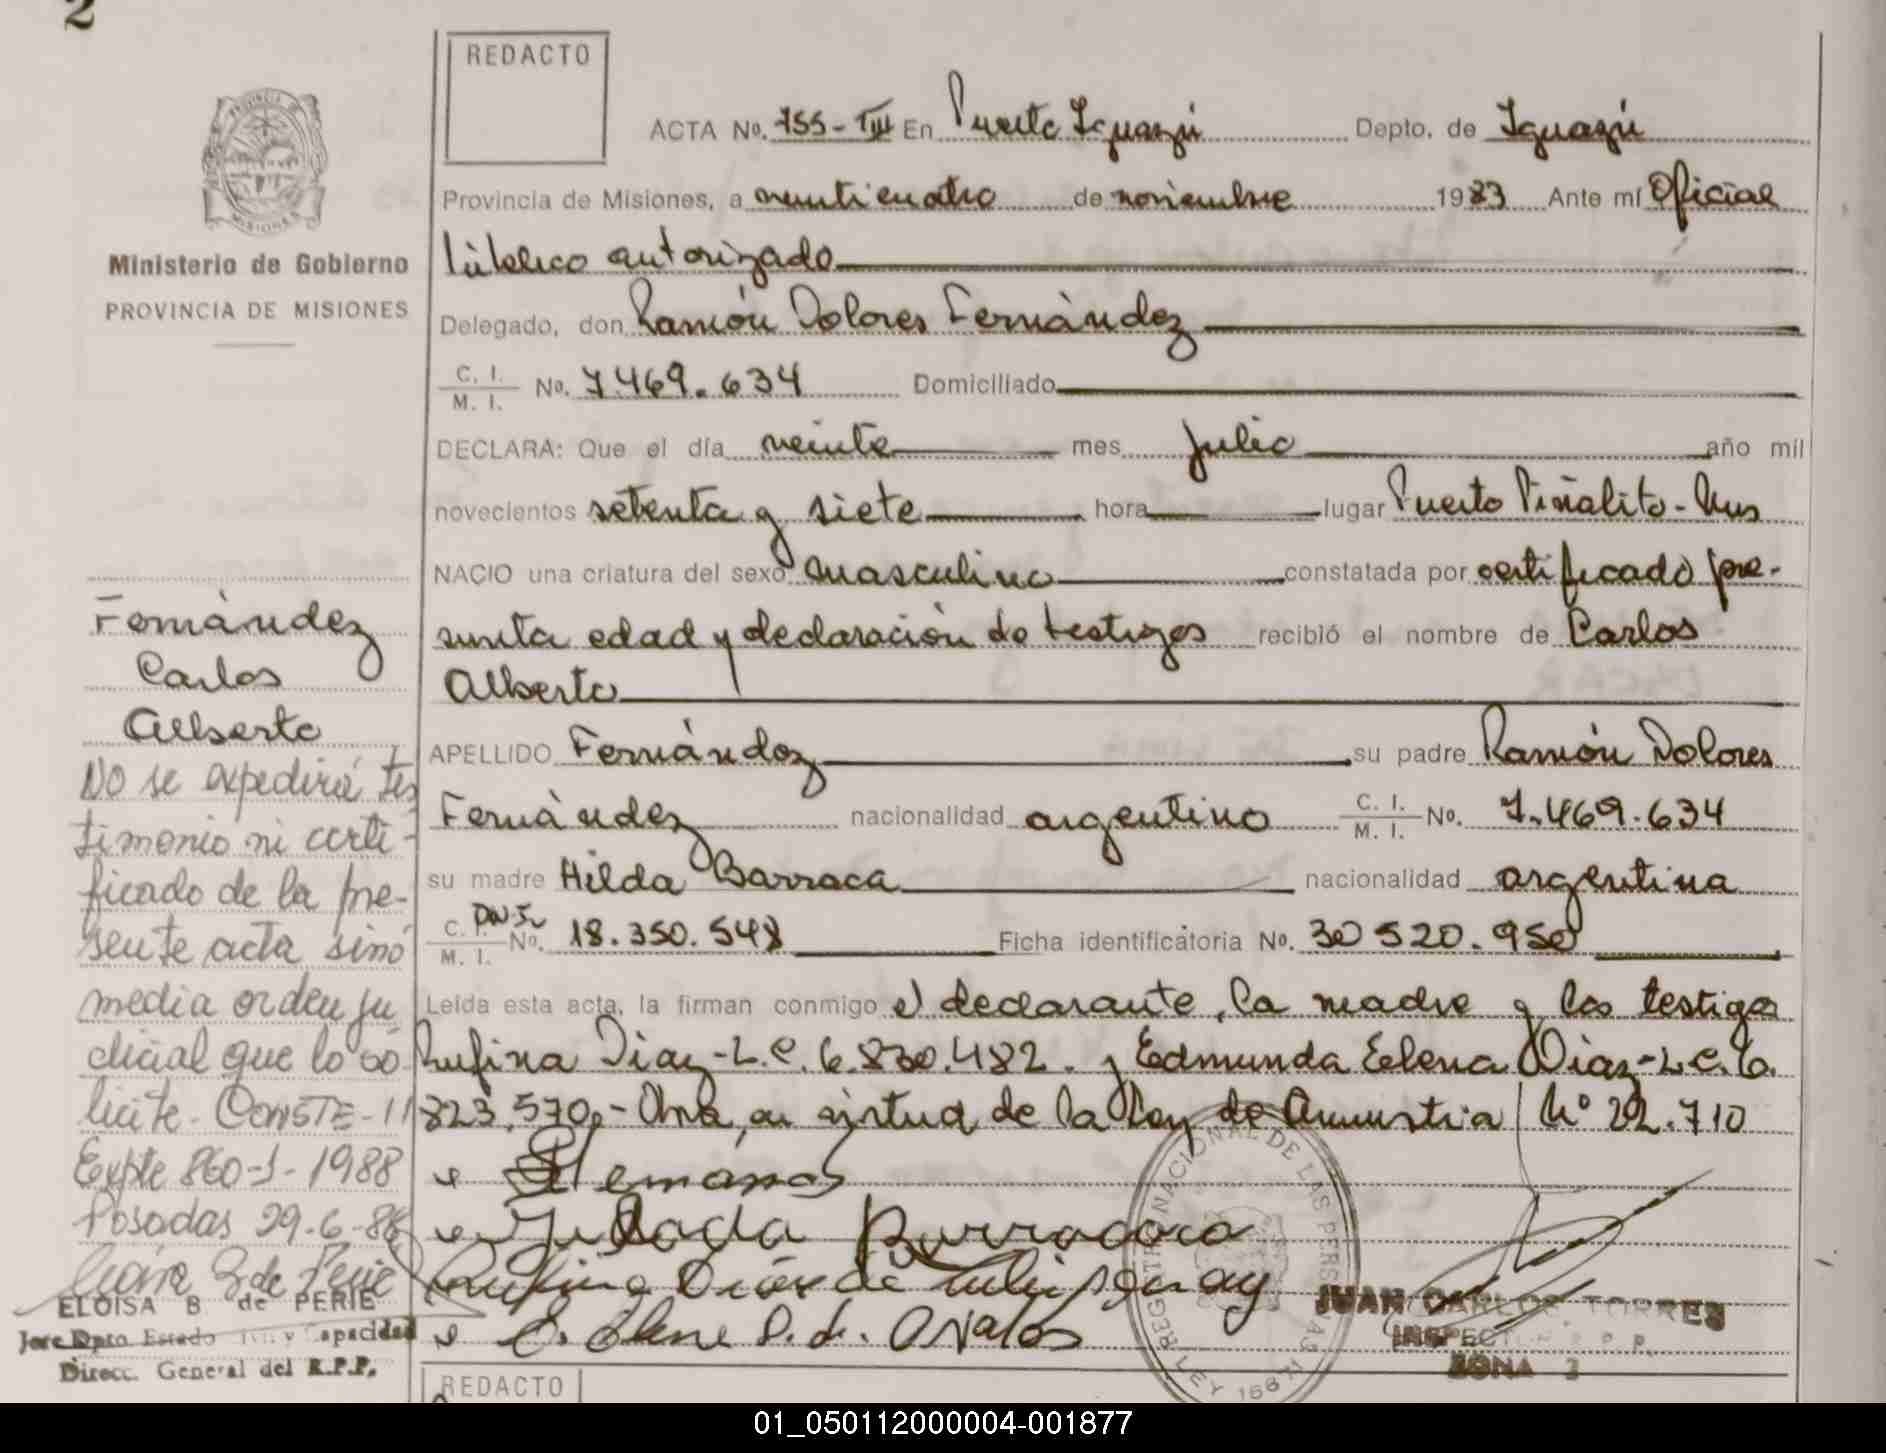 2
REDACTO
ACTA No. 755-TIII En Puerto Iguazú Depto. de Iguazú
PROVINCIA DE MISIONES
Provincia de Misiones, a veinticuatro de noviembre 1983 Ante mí Oficial
Ministerio de Gobierno
PROVINCIA DE MISIONES
Público autorizado
Delegado, don Ramón Dolores Fernández
C. I. / M. I. No. 7.469.634 Domiciliado
DECLARA: Que el día veinte mes julio año mil
novecientos setenta y siete hora lugar Puerto Piñalito-Mns
NACIO una criatura del sexo masculino constatada por certificado pre-
sunta edad y declaración de testigos recibió el nombre de Carlos
Alberto
APELLIDO Fernández su padre Ramón Dolores
Fernández nacionalidad argentino C. I. / M. I. No. 7.469.634
su madre Hilda Barraca nacionalidad argentina
C. I. / M. I. No. 18.350.548 Ficha identificatoria No. 30 520.950
Leída esta acta, la firman conmigo el declarante, la madre y los testigos
Rufina Diaz-L.C.6.830.482. y Edmunda Elena Diaz-L.C.6.
823.570.- en virtud de la Ley de Amnistia Nº 22.710
Fernández
Carlos
Alberto
No se expedirá tes
timonio ni certi-
ficado de la pre-
sente acta sinó
media orden ju
dicial que lo so
licite. CONSTE-11
Expte 860-J-1988
Posadas 29-6-88
ELOISA B de PERIE
Jefe Dpto Estado Civil y Capacidad
Direcc. General del R.P.P.
E. Elena D. de Avalos
REGISTRO NACIONAL DE LAS PERSONAS
LEY 16671
JUAN CARLOS TORRES
INSPECTOR R. P. P.
ZONA 3
REDACTO
01_050112000004-001877